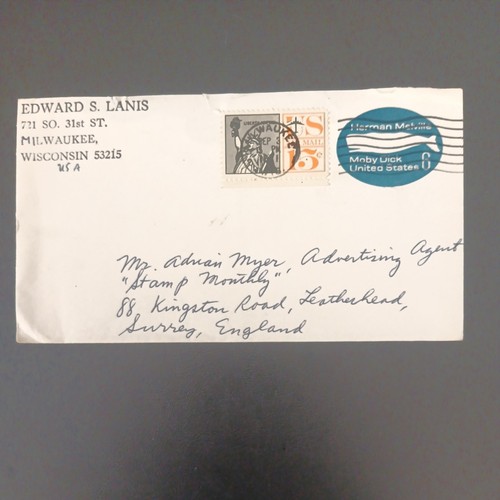 EDWARD S. LANIS
721 SO. 31st ST.
MILWAUKEE,
WISCONSIN 53215
USA
US
MAIL
15¢
MILWAUKEE
SEP 3
PM
Herman Melville
Moby Dick
United States 6
Mr. Adrian Myer, Advertising Agent
"Stamp Monthly"
88, Kingston Road, Leatherhead,
Surrey, England